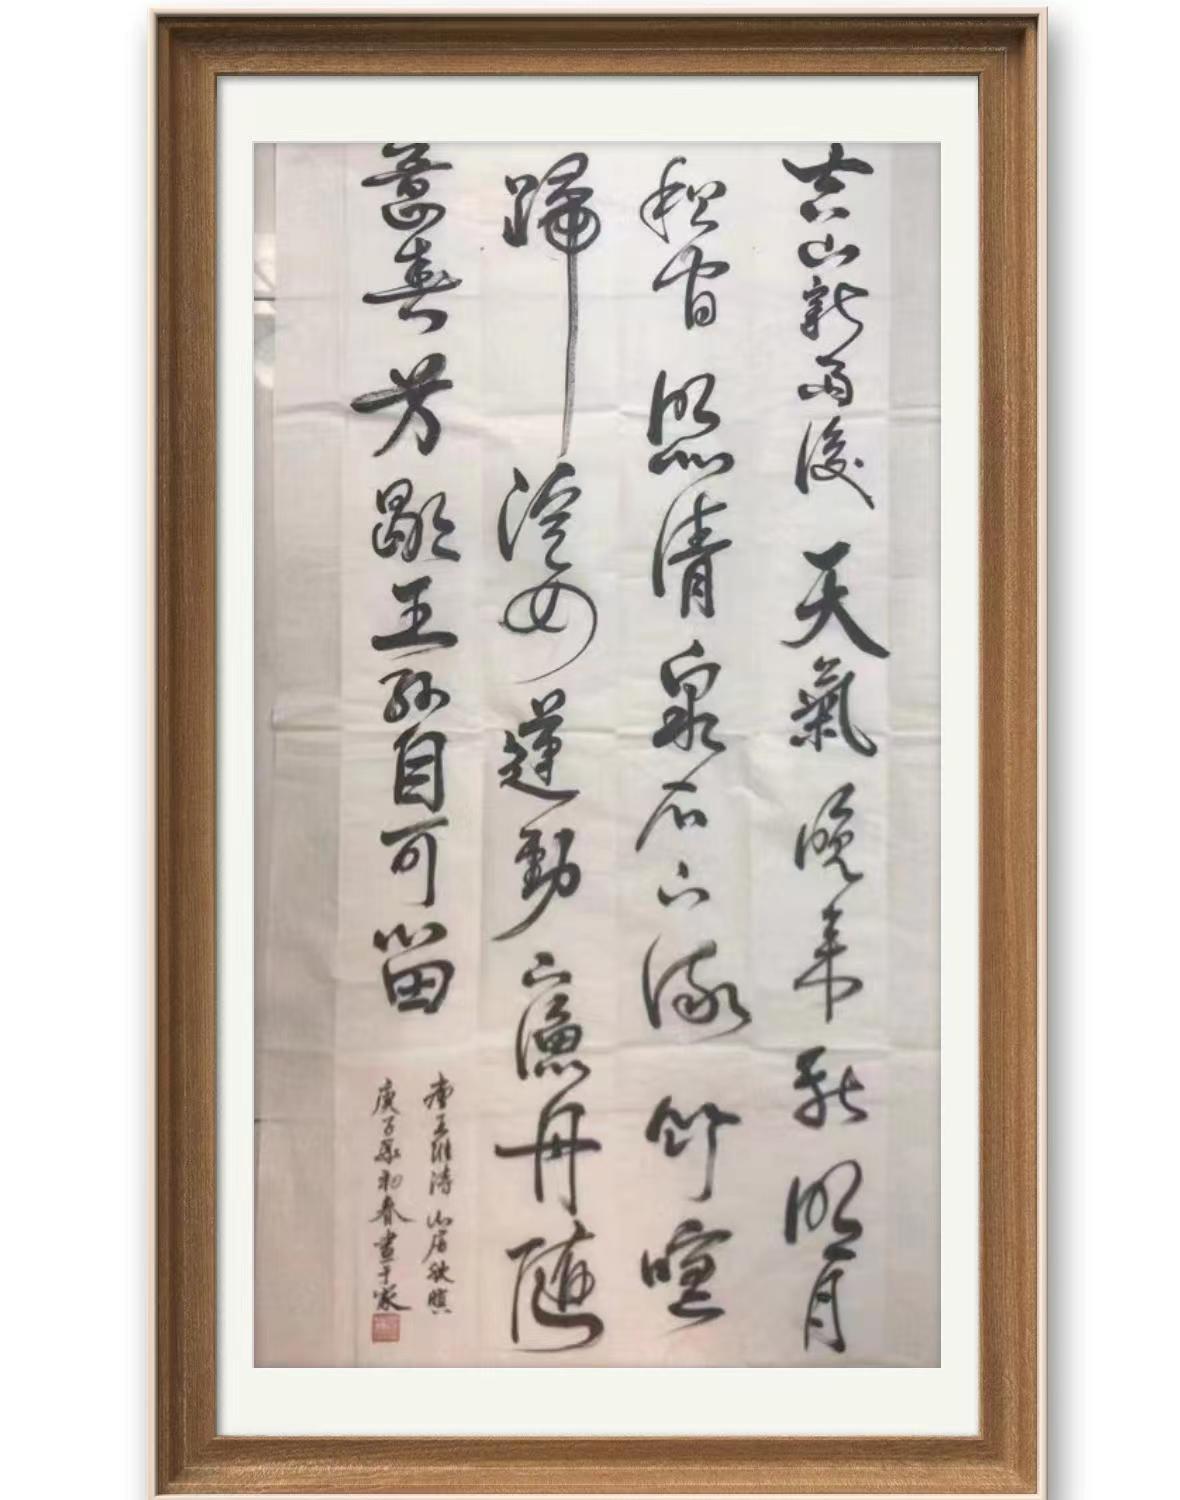 空山新雨後天氣晚來秋明月
松間照清泉石上流竹喧
歸浣女蓮動下漁舟隨
意春芳歇王孫自可留
唐王維詩山居秋暝
庚子年初春書于家